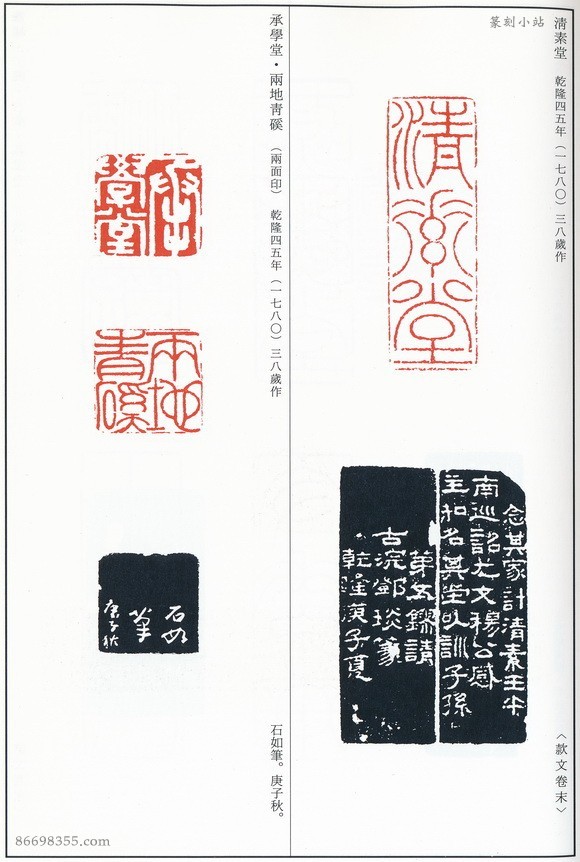 篆刻小站
清素堂 乾隆四五年（一七八〇）三八歲作
清素堂
念其家計清素壬午
南巡詔尤文穆公感
主知名其堂以訓子孫
第五鏐請
古浣鄧琰篆
乾隆庚子夏
〈款文卷末〉
承學堂・兩地靑磎 （兩面印） 乾隆四五年（一七八〇）三八歲作
承學堂
兩地青磎
石如
筆
庚子秋
石如筆。庚子秋。
86698355.com